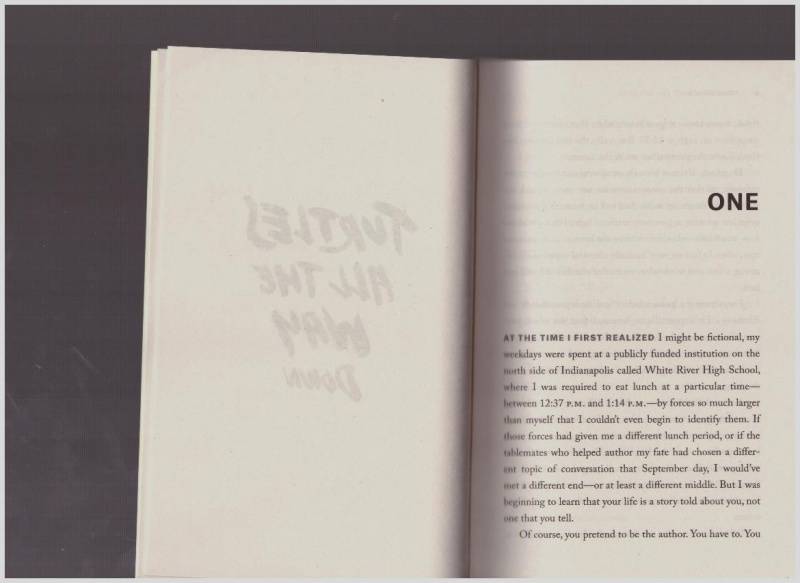 TURTLES
ALL THE
WAY
DOWN
ONE
AT THE TIME I FIRST REALIZED I might be fictional, my
weekdays were spent at a publicly funded institution on the
north side of Indianapolis called White River High School,
where I was required to eat lunch at a particular time—
between 12:37 P.M. and 1:14 P.M.—by forces so much larger
than myself that I couldn't even begin to identify them. If
those forces had given me a different lunch period, or if the
tablemates who helped author my fate had chosen a differ-
ent topic of conversation that September day, I would've
met a different end—or at least a different middle. But I was
beginning to learn that your life is a story told about you, not
one that you tell.
Of course, you pretend to be the author. You have to. You